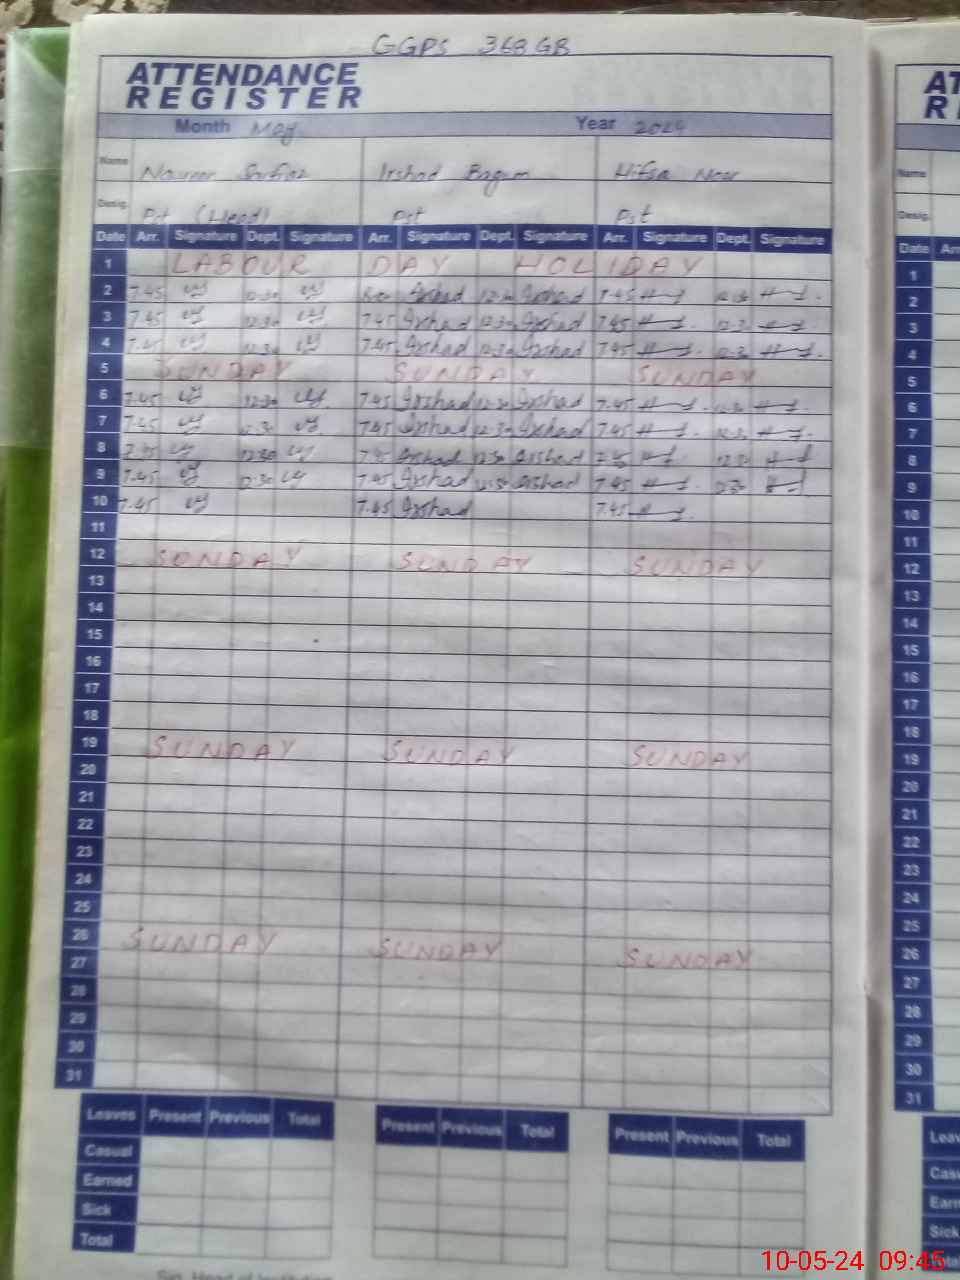 GGPS 368 GB
ATTENDANCE
REGISTER
Month May Year 2024
Name Irshad Bagum Hifsa Noor
Desig. Pst (Head) Pst Pst
Date Arr. Signature Dept. Signature Arr. Signature Dept. Signature Arr. Signature Dept. Signature
1 LABOUR DAY HOLIDAY
2 7.45 12.30 Irshad 12.30 Irshad 7.45 12.30
3 7.45 12.30 7.45 Irshad 12.30 Irshad 7.45 12.30
4 7.45 12.30 7.45 Irshad 12.30 Irshad 7.45 12.30
5 SUNDAY SUNDAY SUNDAY
6 7.45 12.30 7.45 Irshad 12.30 Irshad 7.45 12.30
7 7.45 12.30 7.45 Irshad 12.30 Irshad 7.45 12.30
8 7.45 12.30 7.45 Irshad 12.30 Irshad 7.45 12.30
9 7.45 12.30 7.45 Irshad 12.30 Irshad 7.45 12.30
10 7.45 7.45 Irshad 7.45
11
12 SUNDAY SUNDAY SUNDAY
13
14
15
16
17
18
19 SUNDAY SUNDAY SUNDAY
20
21
22
23
24
25
26 SUNDAY SUNDAY SUNDAY
27
28
29
30
31
Leaves Present Previous Total Present Previous Total Present Previous Total
Casual
Earned
Sick
Total
AT
R
Name
Desig.
Date
1
2
3
4
5
6
7
8
9
10
11
12
13
14
15
16
17
18
19
20
21
22
23
24
25
26
27
28
29
30
31
Leav
Cas
Earn
Sick
10-05-24 09:45